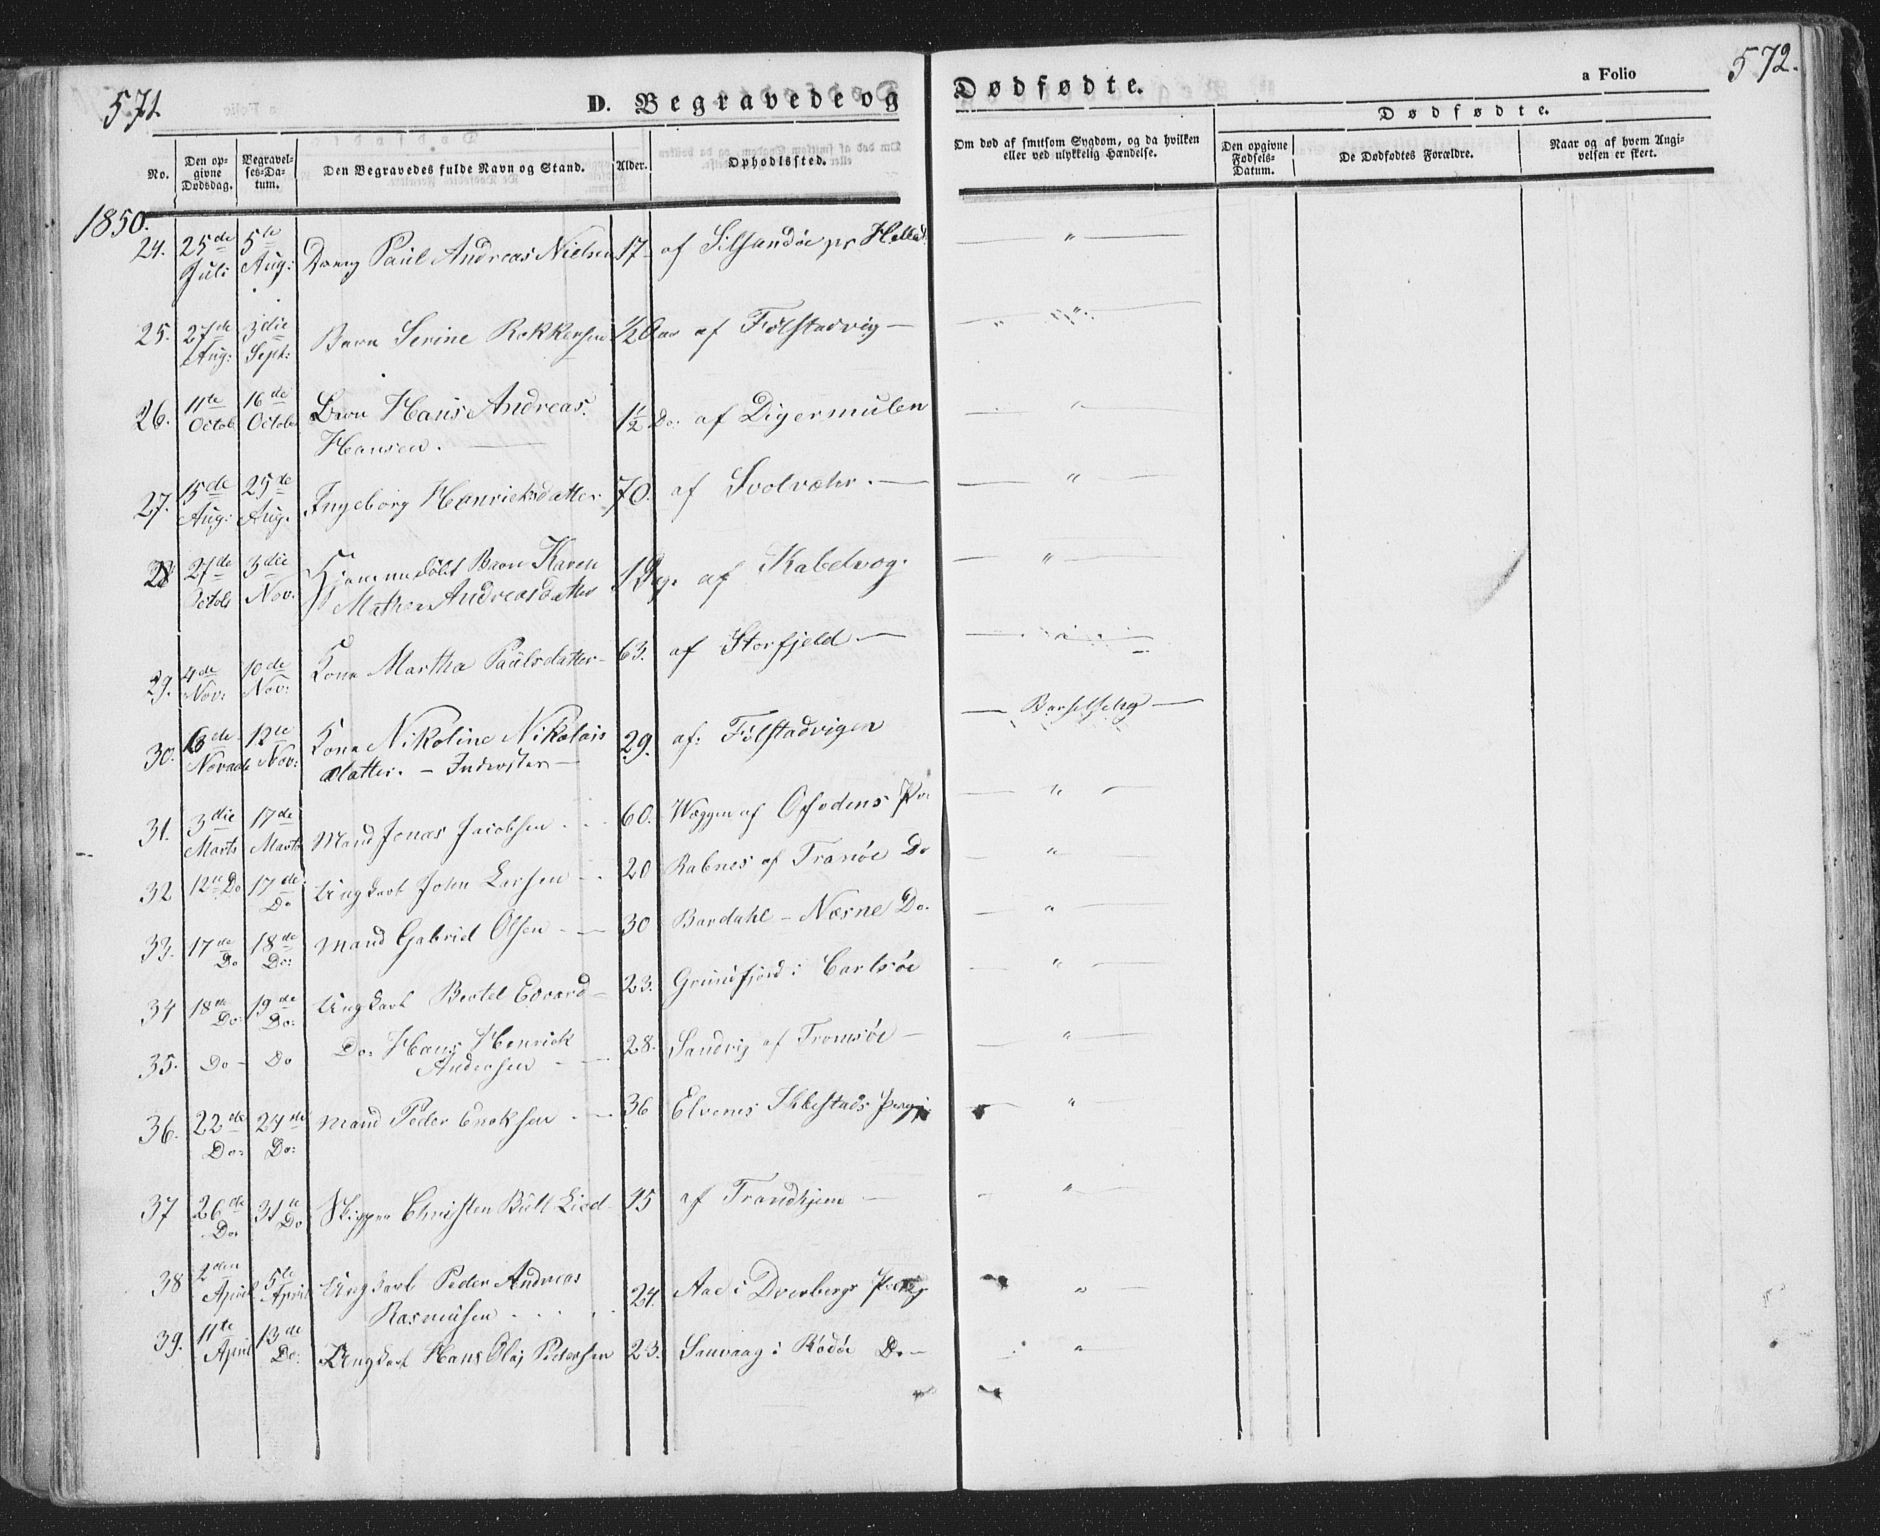 571
D. Begravede og
Dødfødte.
a Folio
572.
No.
Den opgivne Dødsdag.
Begravelses-Datum.
Den Begravedes fulde Navn og Stand.
Alder.
Opholdssted.
Om død af smitsom Sygdom, og da hvilken eller ved ulykkelig Hændelse.
Dødfødte.
Den opgivne Fødsels-Datum.
De Dødfødtes Forældre.
Naar og af hvem Angivelsen er skeet.
1850.
24. 25de Juli 5te Aug: Dreng Paul Andreas Nielsen 17 af Silsandøe pr "
25. 27de Aug: 3die Sept: Barn Serine 1/2 Aar af Følstadvig —
26. 11te Octob 16de Octob Barn Hans Andreas Hansen. 1 1/2 Do: af Digermulen "
27. 15de Aug: 25de Aug. Ingeborg Henriksdatter 70. af Svolvær. — "
28 27de Octob 3die Nov. Hjemmedøbt Barn Karen Andreasdatter af Kabelvog. "
29. 4de Nov: 10de Nov: Kone Martha Paulsdatter 63. af Storfjeld — "
30. 12te Nov: Kone Nikoline Nikolais datter. — Inderster — 29. af: Følstadvigen — Barselseng —
31. 3die Marts 17de Marts Mand Jonas Jacobsen 60. Wæggen af Ofodens Pr "
32 12te Do 17de Do Ungkarl John Larsen 20 Rabnes af Tranøe Do "
33. 17de Do 18de Do: Mand Gabriel Olsen 30 Bardahl — Næsne Do. "
34 18de Do: 19de Do: Ungkarl Bertel Edvard — 23. Grunfjord i Carlsøe "
35. Do — Do Do: Hans Henrick Andersen 28. Sandvig af Tromsøe — "
36. 22de Do: 24de Do: Mand Peder Enoksen 36 Elvenes Ibbestads "
37 26de Do: 31te Do Skipper Christen Bull Lied 45 af Trondhjem — "
38 2den April 5te April Ungkarl Peder Andreas Rasmussen 24. Aae i Dverbergs "
39. 11te April 13de Do: Ungkarl Hans Olaj Pedersen 23. Sauvaag i Rødøe Do — "